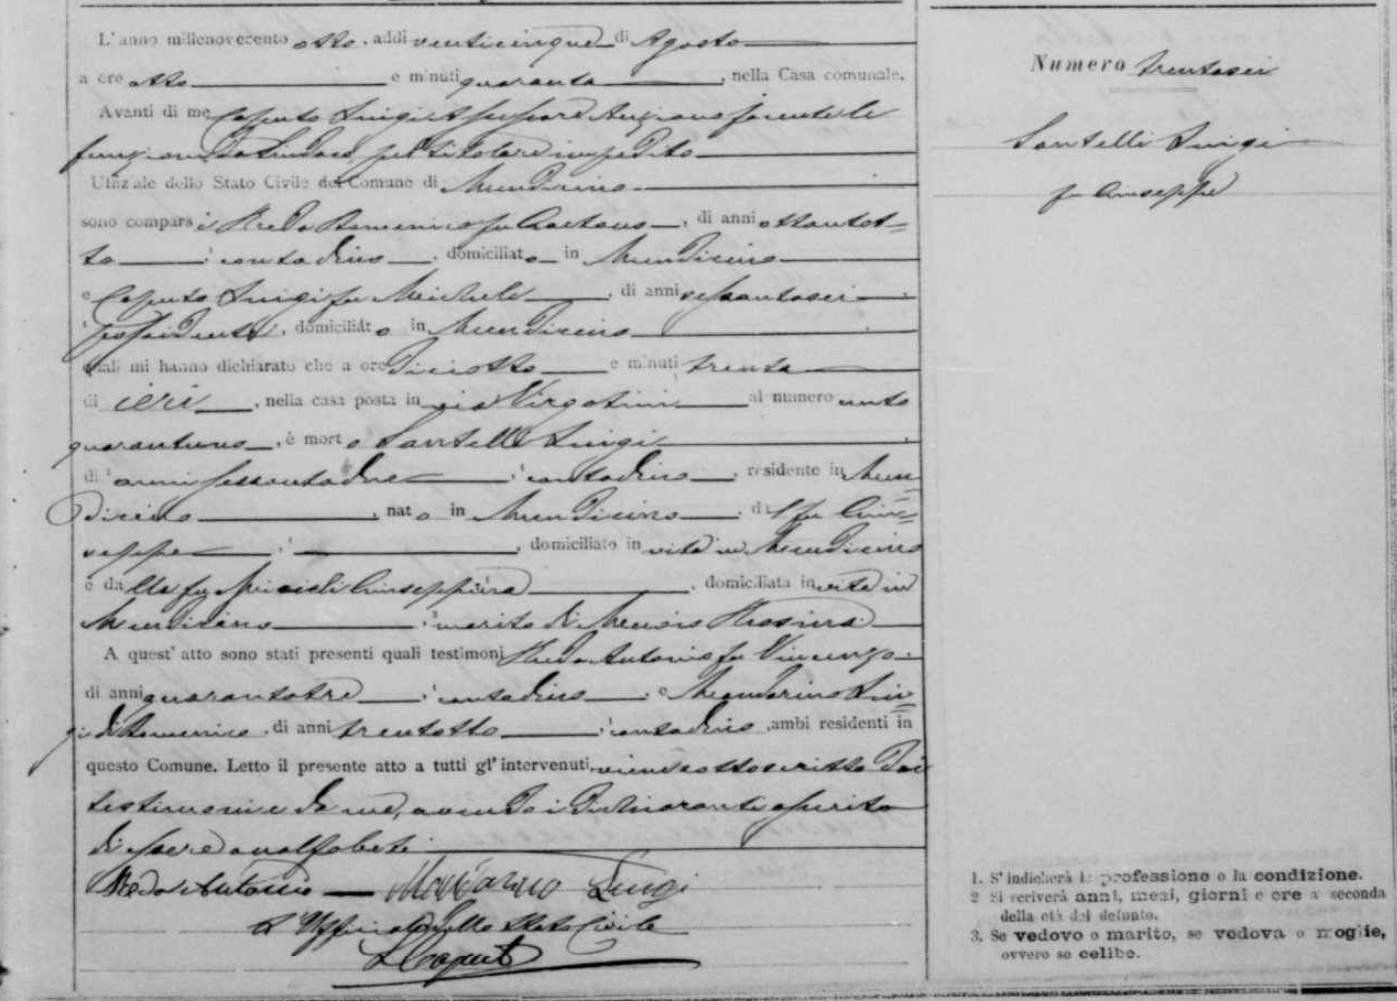 L'anno millenovecento otto, addì venticinque di Agosto
a ore otto e minuti quaranta, nella Casa comunale.
Avanti di me Caputo Luigi Assessore Anziano facente le
funzioni da Sindaco pel titolare impedito
Uffiziale dello Stato Civile del Comune di Mendicino
sono comparsi Reda Domenico fu Gaetano, di anni ottantot=
to, contadino, domiciliato in Mendicino
e Caputo Luigi fu Michele, di anni sessantasei
possidente, domiciliato in Mendicino
quali mi hanno dichiarato che a ore diciotto e minuti trenta
di ieri, nella casa posta in via al numero cento
quarantuno, è morto Santelli Luigi
di anni sessantadue, contadino, residente in Men=
dicino, nato in Mendicino, dal fu Giu=
seppe, domiciliato in vita in Mendicino
e dalla fu Giuseppina, domiciliata in vita in
Mendicino, marito di Rosina
A quest' atto sono stati presenti quali testimoni Reda Antonio fu Vincenzo
di anni quarantatre, contadino, e Mandarino Lui=
gi di Domenico, di anni trentotto, contadino, ambi residenti in
questo Comune. Letto il presente atto a tutti gl' intervenuti, viene sottoscritto dai
testimoni e da me, avendo i dichiaranti asserito
di essere analfabeti
Reda Antonio — Mandarino Luigi
L'Ufficiale dello Stato Civile
L Caputo
Numero trentasei
Santelli Luigi
fu Giuseppe
1. S' indicherà la professione o la condizione.
2 Si scriverà anni, mesi, giorni e ore a seconda
della età del defunto.
3. Se vedovo o marito, se vedova o moglie,
ovvero se celibe.